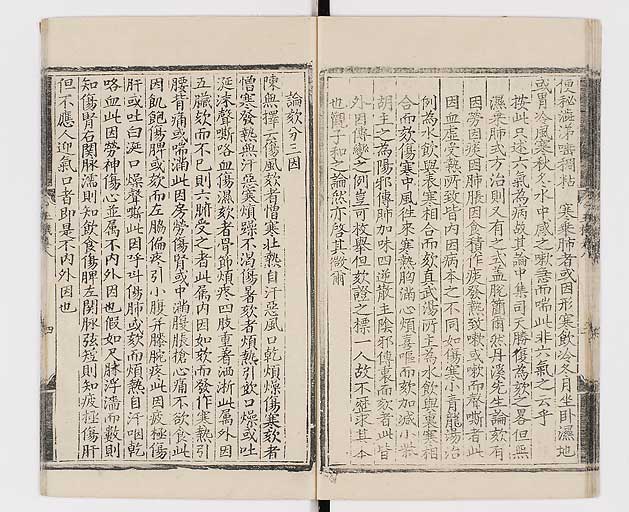 便秘涕唾稠粘 寒乘肺者或因形寒飲冷冬月坐卧濕地
或冒冷風寒秋冬水中感之嗽急而喘此非六氣之云乎
按此只述六氣為病故其論中集司天勝復為欬之畧但無
濕乘肺或方治則又有之或盖脫簡爾然丹溪先生論欬有
因勞因痰因肺脹因食積作痰發熱致嗽或嗽而聲嘶者此
因血虛受熱所致皆內因病本之不同如傷寒小青龍湯治
例為水飲與表寒相合而欬真武湯所主為水飲與裏寒相
合而欬傷寒中風往來寒熱胸滿心煩喜嘔而欬加減小柴
胡主之為陽邪傳肺加味四逆散主陰邪傳裏而欬者此皆
外因傳變之例豈可枚舉但欬證之標一人故不歷求其本
也觀子和之論然亦啓其微爾
論欬分三因
陳無擇云傷風欬者憎寒壯熱自汗惡風口乾煩燥傷寒欬者
憎寒發熱無汗惡寒煩躁不渴傷暑欬者煩熱引飲口燥或吐
涎沫聲嘶咯血傷濕欬者骨節煩疼四肢重著洒淅此属外因
五臟欬而不已則六腑受之者此属內因如欬而發作寒熱引
腰背痛或喘滿此因房勞傷腎或中滿腹脹搶心痛不欲食此
因飢飽傷脾或欬而左脇偏疼引小腹并膝腕疼此因疲極傷
肝或吐白涎口燥聲嘶此因呼叫傷肺或欬而煩熱自汗咽乾
咯血此因勞神傷心並属不內外因也假如尺脉浮濇而數則
知傷腎右関脉濡則知飲食傷脾左関脉弦短則知疲極傷肝
但不應人迎氣口者即是不內外因也